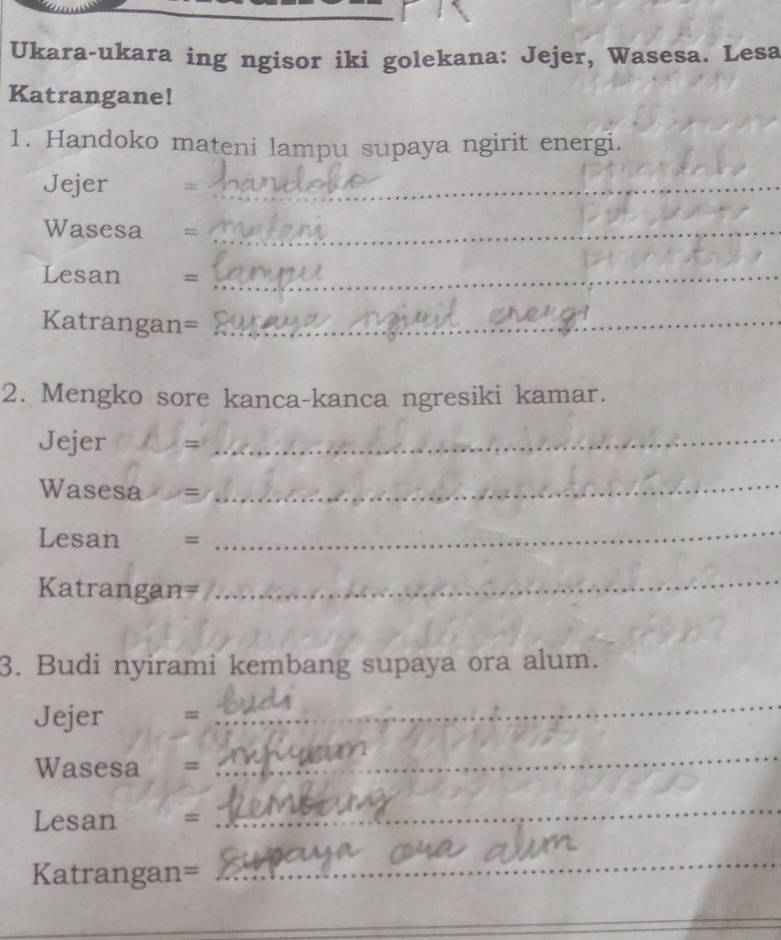 PR
Ukara-ukara ing ngisor iki golekana: Jejer, Wasesa. Lesa
Katrangane!
1. Handoko mateni lampu supaya ngirit energi.
Jejer = handoko
Wasesa = mateni
Lesan = Lampu
Katrangan= Supaya ngirit energi
2. Mengko sore kanca-kanca ngresiki kamar.
Jejer =
Wasesa =
Lesan =
Katrangan=
3. Budi nyirami kembang supaya ora alum.
Jejer = budi
Wasesa =
Lesan = kembang
Katrangan= Supaya ora alum